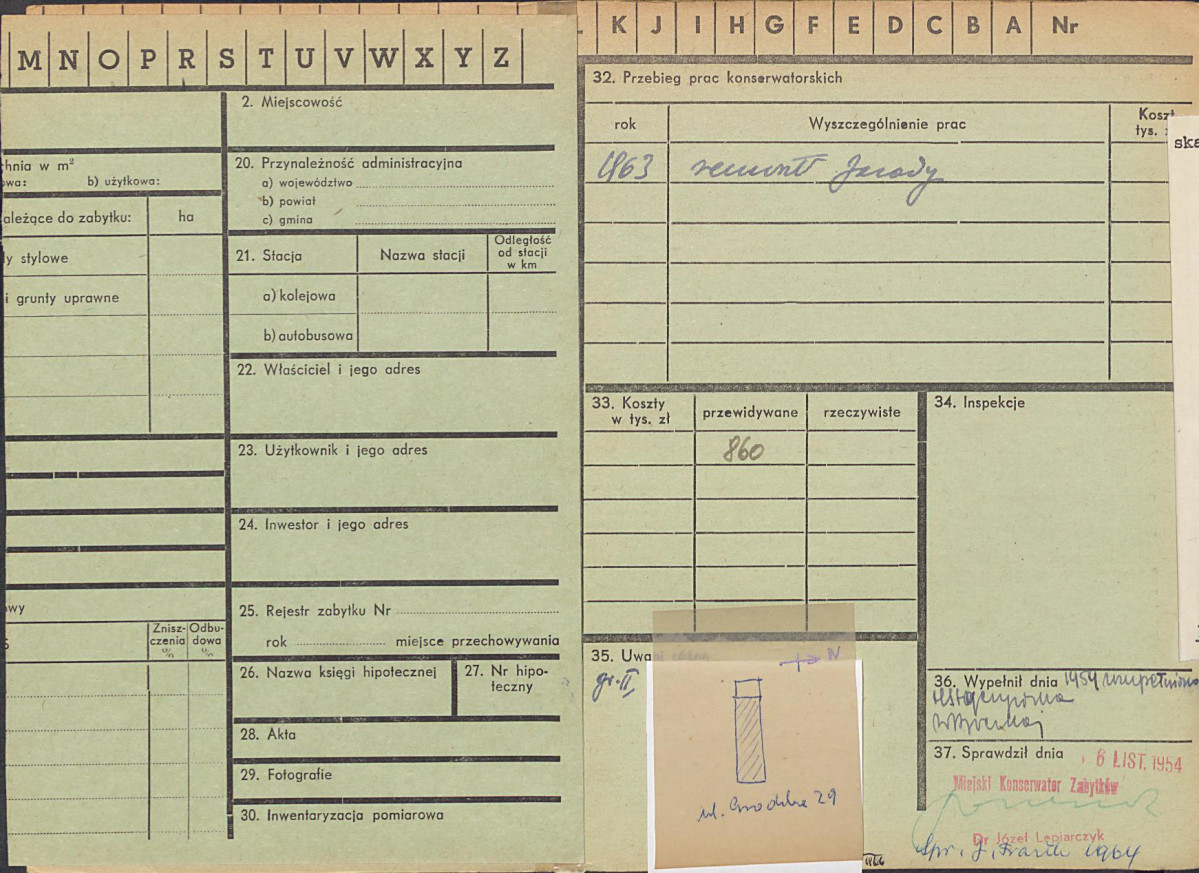 M N O P R S T U V W X Y Z
K J I H G F E D C B A Nr
hnia w m²
owa: b) użytkowa:
ależące do zabytku: ha
y stylowe
i grunty uprawne
wy
Znisz-
czenia
%
Odbu-
dowa
%
2. Miejscowość
20. Przynależność administracyjna
a) województwo
b) powiat
c) gmina
21. Stacja
Nazwa stacji
Odległość
od stacji
w km
a) kolejowa
b) autobusowa
22. Właściciel i jego adres
23. Użytkownik i jego adres
24. Inwestor i jego adres
25. Rejestr zabytku Nr
rok miejsce przechowywania
26. Nazwa księgi hipotecznej
27. Nr hipo-
teczny
28. Akta
29. Fotografie
30. Inwentaryzacja pomiarowa
32. Przebieg prac konserwatorskich
rok
Wyszczególnienie prac
Koszt
tys.
ska
1963 remont fasady
33. Koszty
w tys. zł
przewidywane
rzeczywiste
860
34. Inspekcje
35. Uwagi różne
gr. II
N
ul. Grodzka 29
36. Wypełnił dnia 1959
37. Sprawdził dnia
6 LIST. 1954
Miejski Konserwator Zabytków
Dr Józef Lepiarczyk
Spr. J. 1964